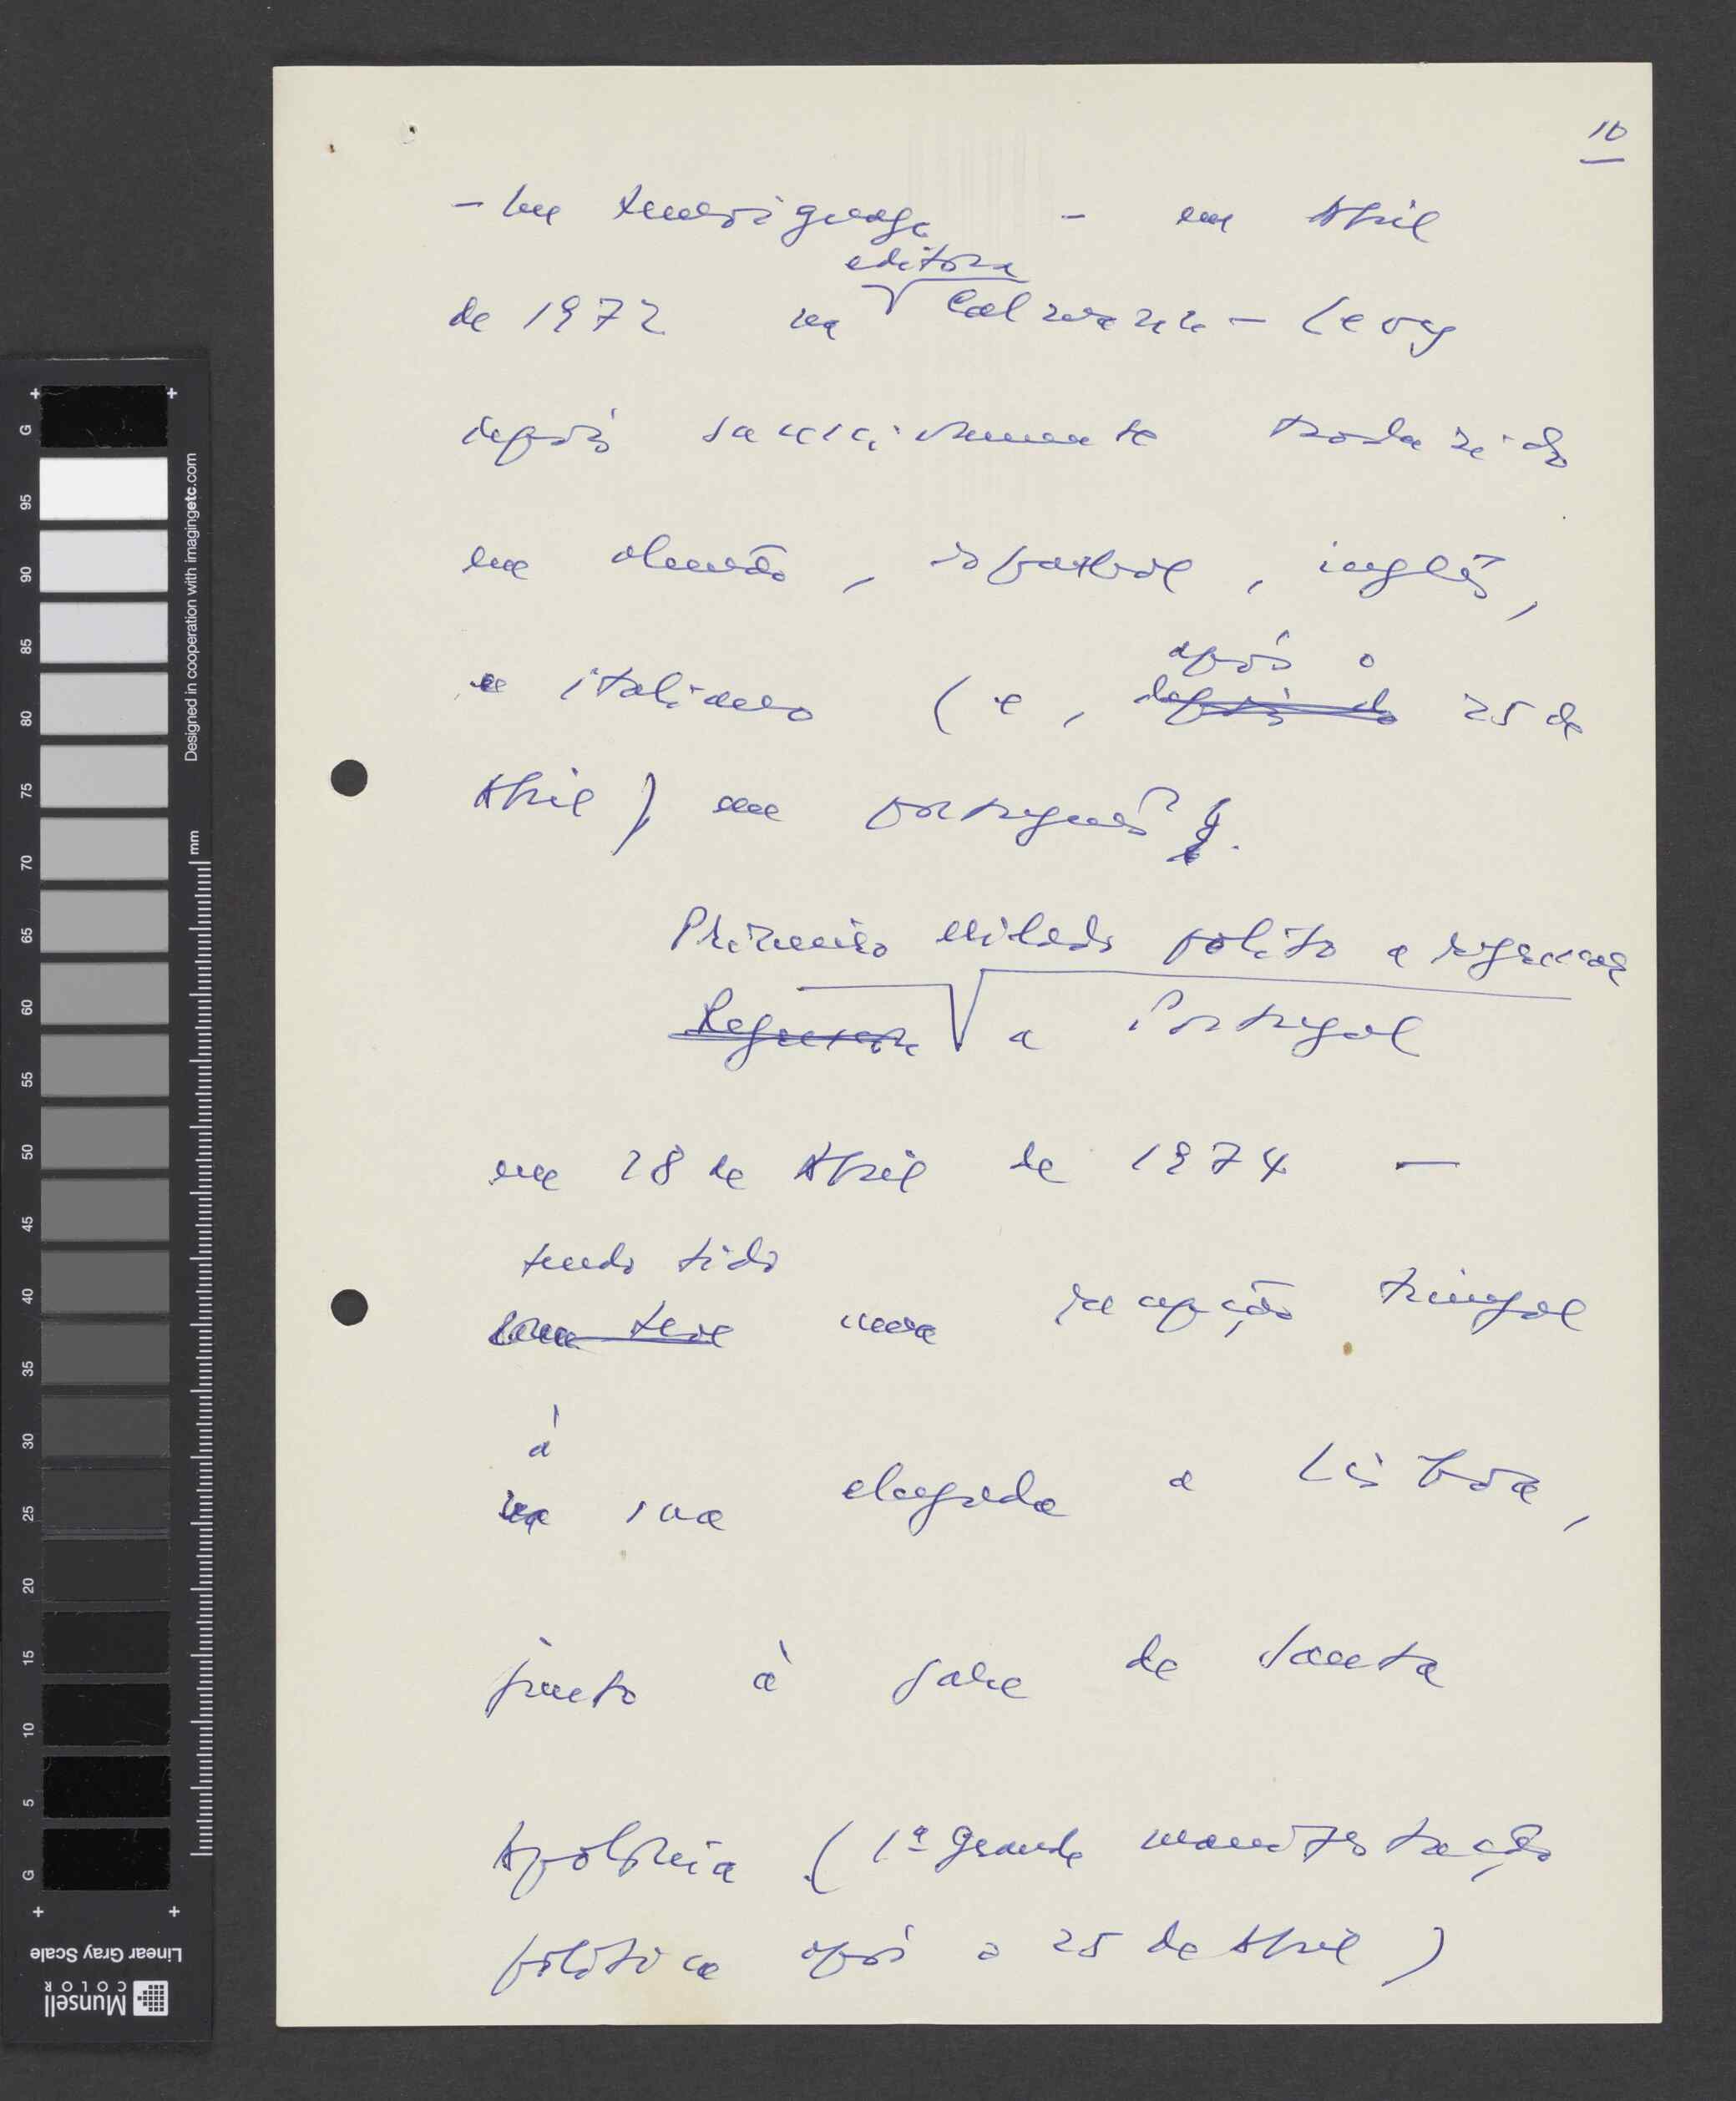 10
- um testemunho - em Abril
editora
de 1972 na Calmann-Levy
depois sucessivamente traduzido
em alemão, espanhol, inglês,
e italiano (e, após o
depois do 25 de
Abril) em português.
Primeiro exilado político a regressar
Regressa a Portugal
em 28 de Abril de 1974 —
tendo tido
teve uma recepção triunfal
à
na sua chegada a Lisboa,
junto à gare de Santa
Apolónia (1ª grande manifestação
política após o 25 de Abril)
G
95
90
85
80
75
70
65
60
55
50
45
40
35
30
25
20
15
10
5
G
mm
Designed in cooperation with imagingetc.com
Linear Gray Scale
Munsell
COLOR